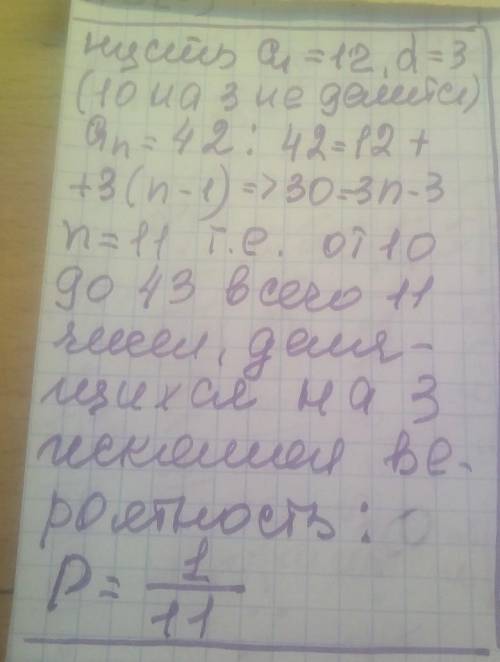 пусть a₁=12, d=3
(10 на 3 не делится)
aₙ=42: 42=12+
+3(n-1)=>30=3n-3
n=11 т.е. от 10
до 43 всего 11
чисел, деля-
щихся на 3
искомая ве-
роятность:
P= 1/11